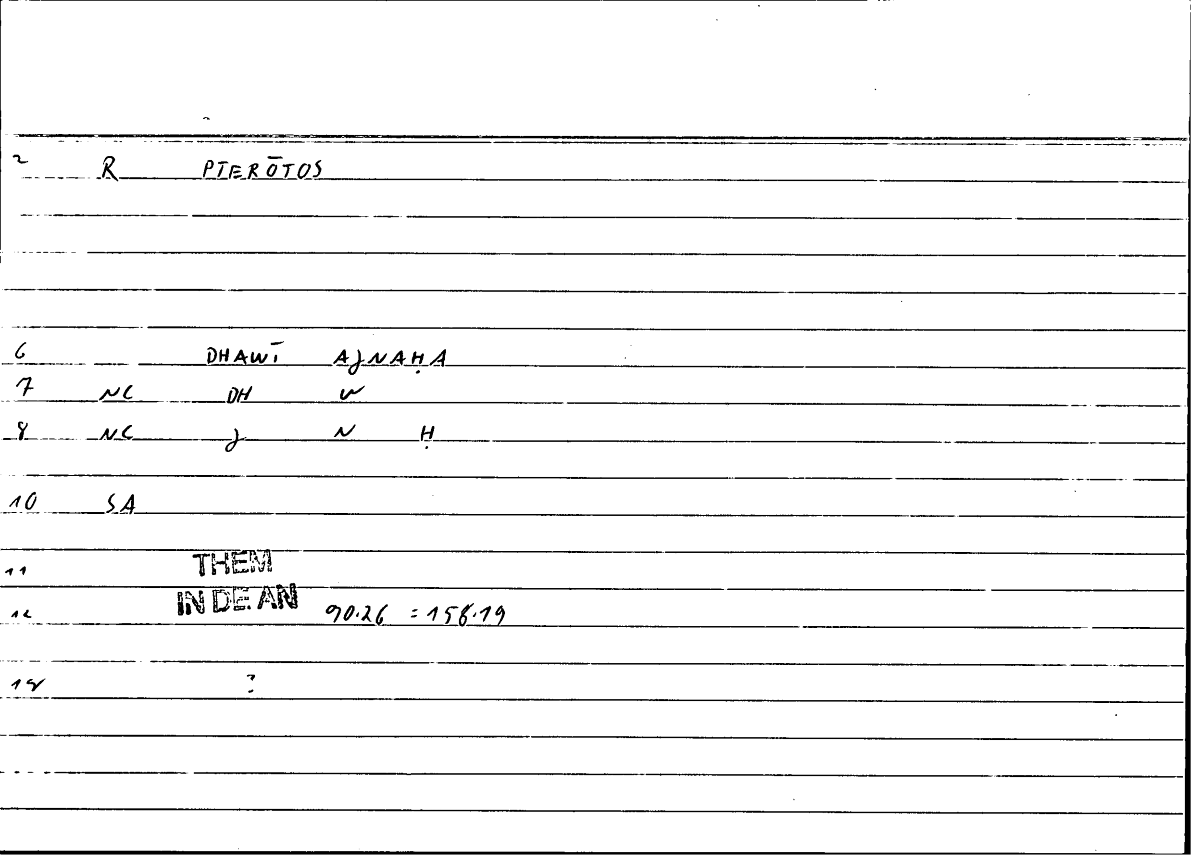 2 R PTERŌTOS
6 DHAWĪ AJNAḤA
7 NC DH W
8 NC J N Ḥ
10 SA
11 THEM
12 IN DE AN 90.26 = 158.19
?